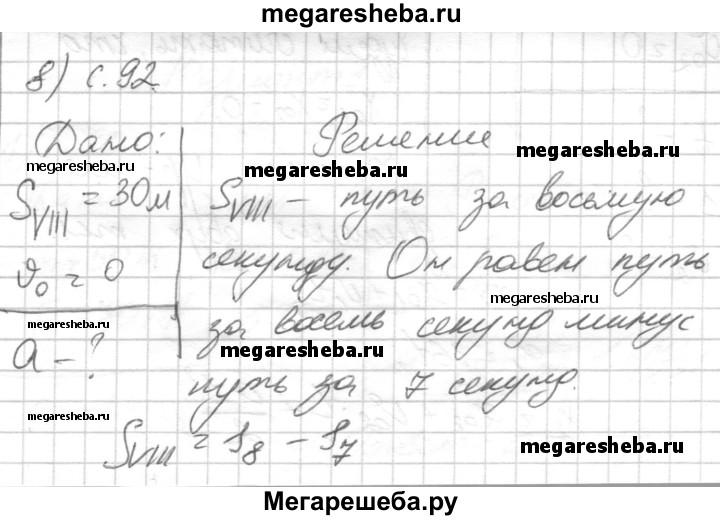 megaresheba.ru
8) с. 92.
Дано: Решение
megaresheba.ru megaresheba.ru megaresheba.ru
S_VIII = 30 м S_VIII – путь за восьмую
секунду. Он равен путь
ϑ₀ = 0 megaresheba.ru
megaresheba.ru за восемь секунд минус
a – ? megaresheba.ru
путь за 7 секунд.
megaresheba.ru
S_VIII = S₈ – S₇ megaresheba.ru
Мегарешеба.ру